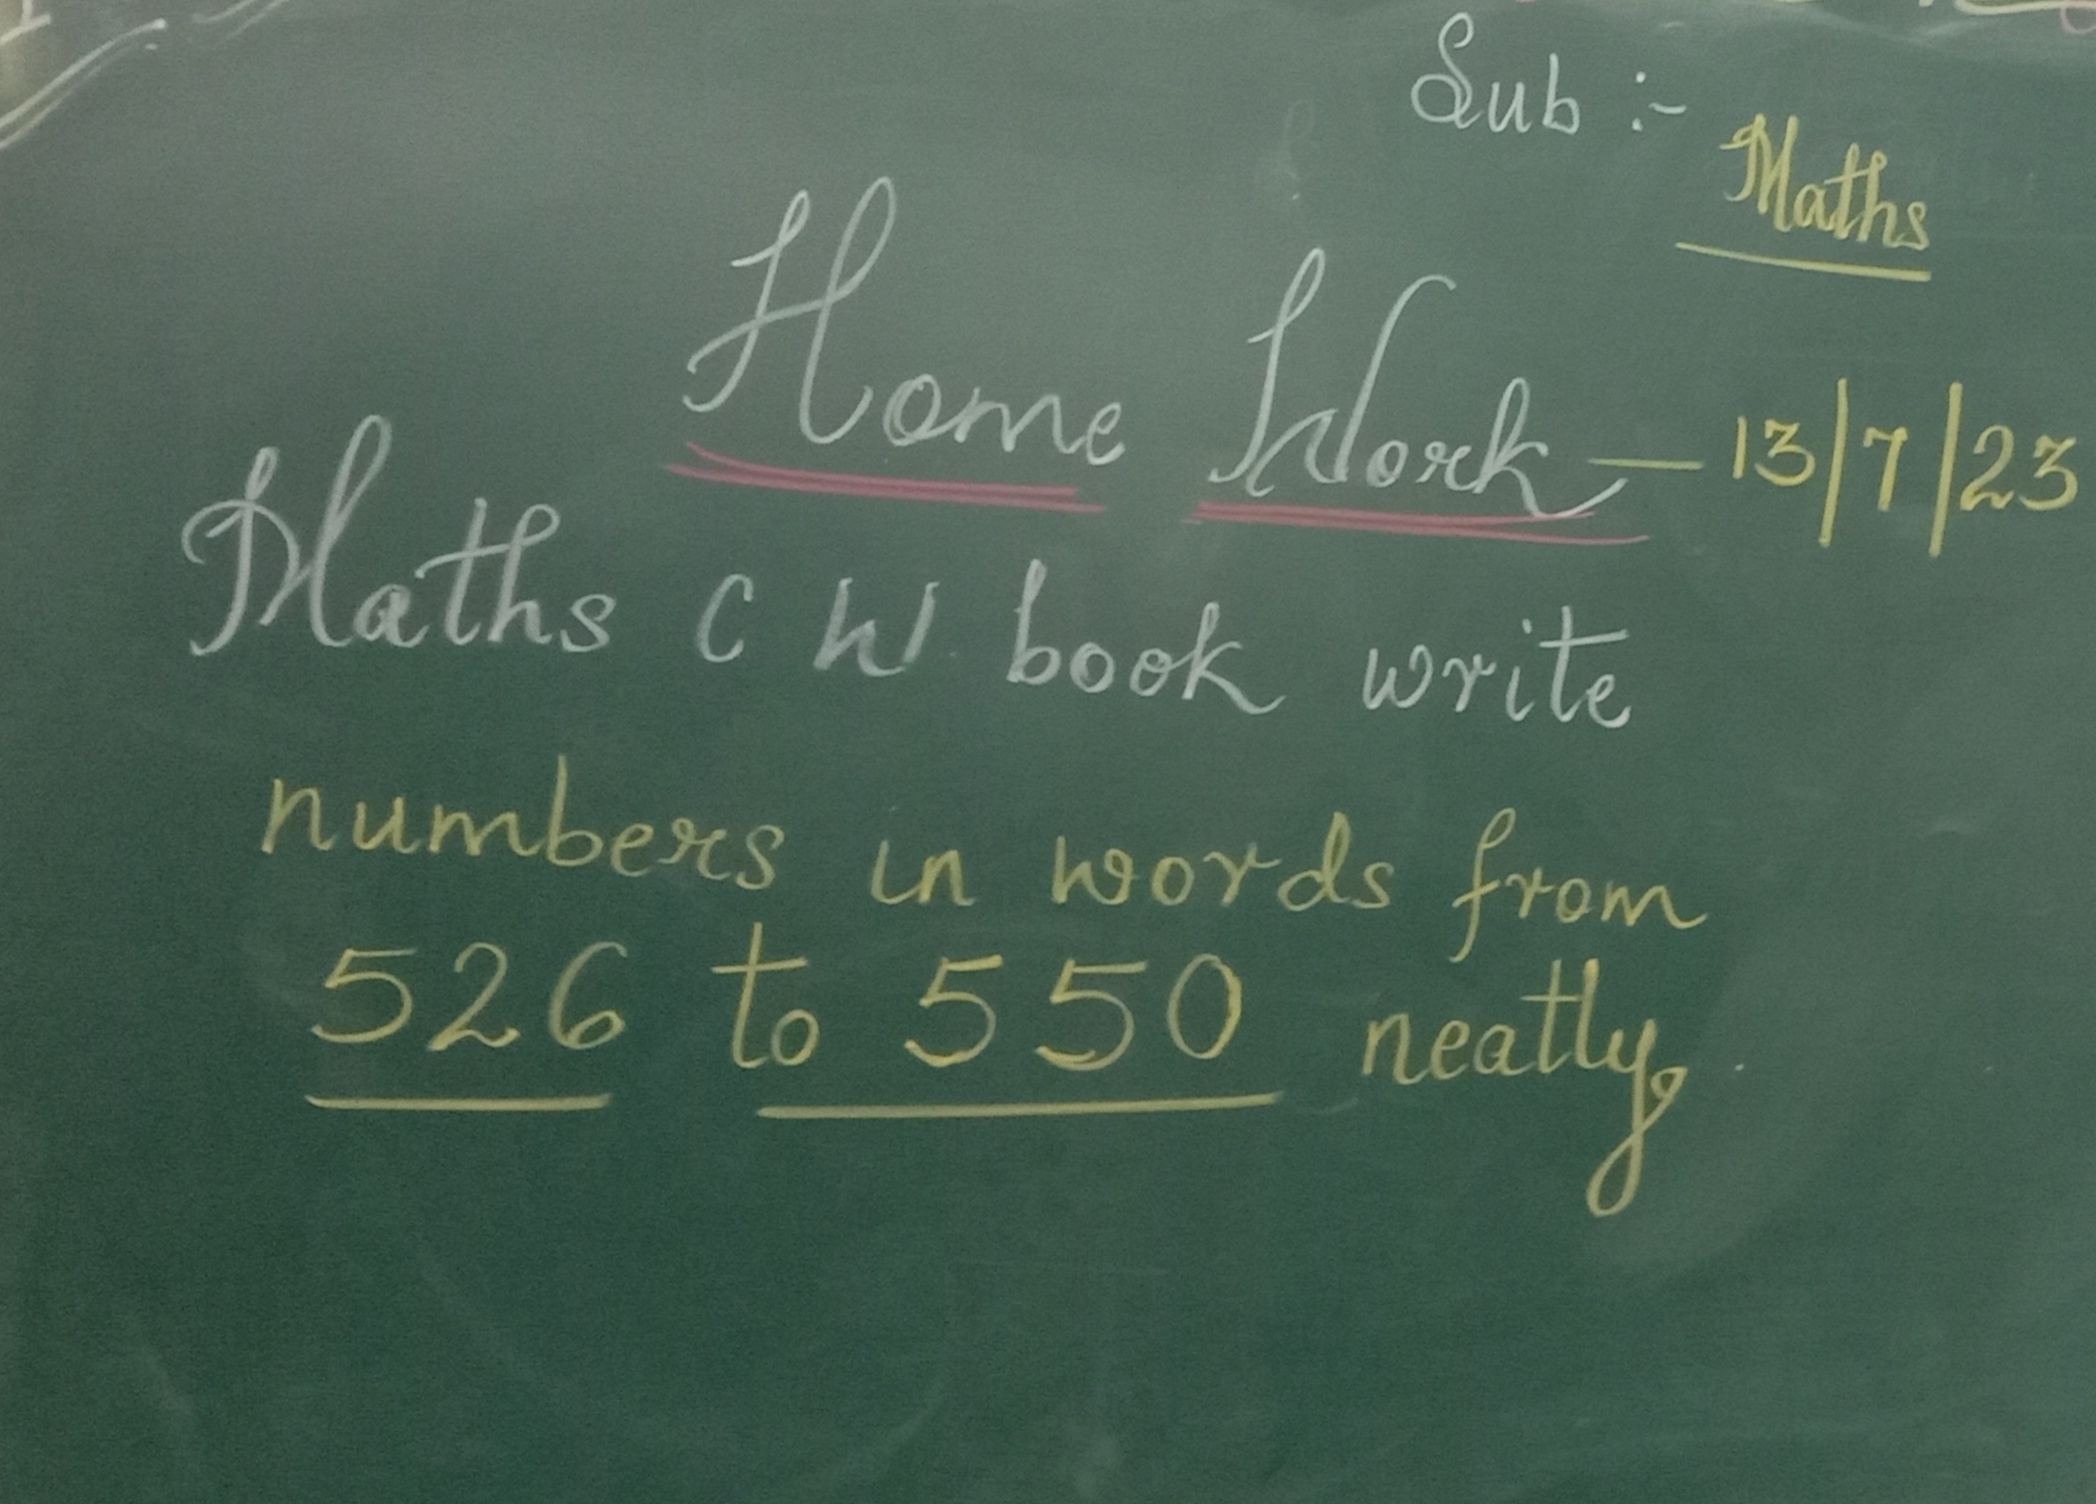 Sub :- Maths
Home Work — 13/7/23
Maths C W book write
numbers in words from
526 to 550 neatly.